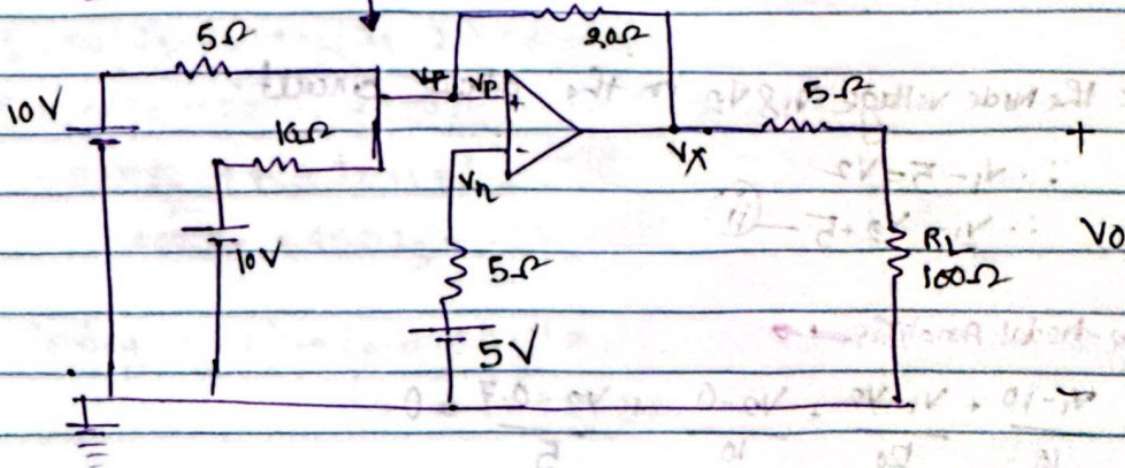 5Ω
20Ω
10V
VP VP
+
5Ω
+
10Ω
-
Vx
Vn
10V
5Ω
RL
100Ω
Vo
5V
-